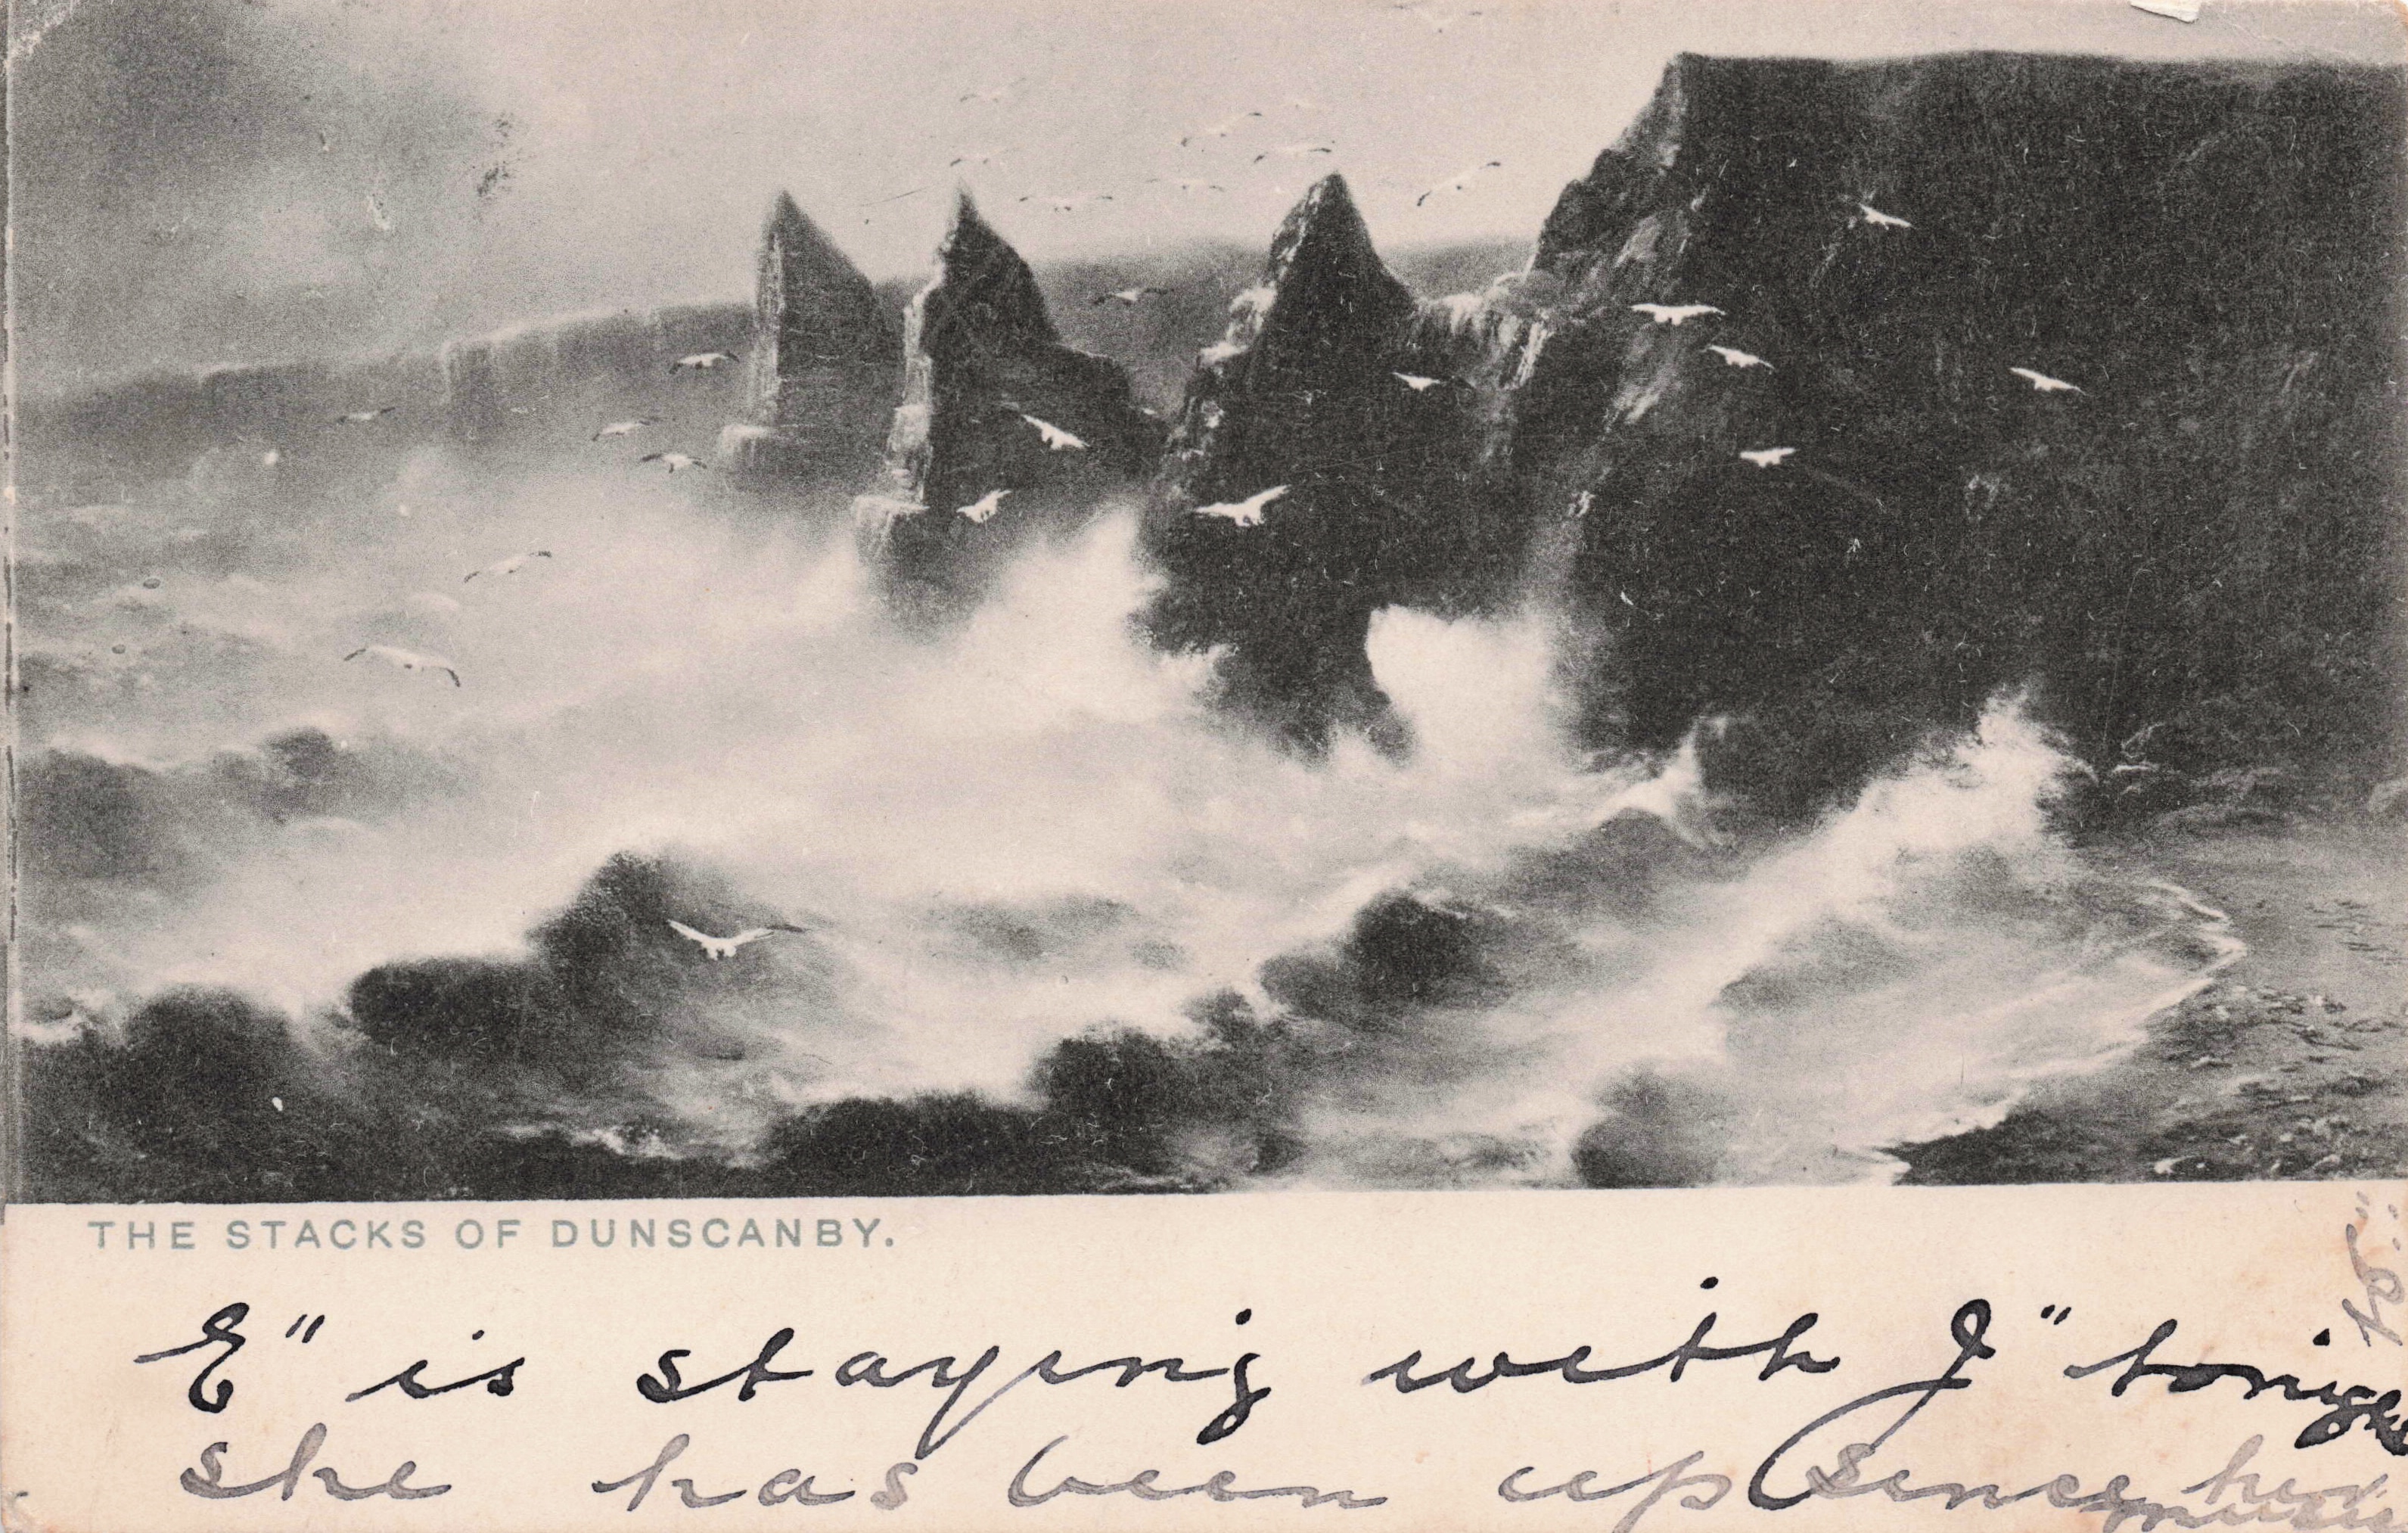 THE STACKS OF DUNSCANBY.
E" is staying with J" tonight
she has been up since her
music